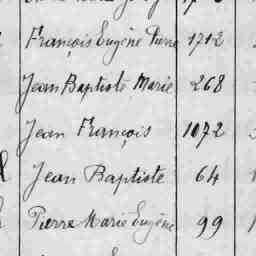 François Eugène Pierre 1712
Jean Baptiste Marie 268
Jean François 1072
Jean Baptiste 64
Pierre Marie Eugène 99